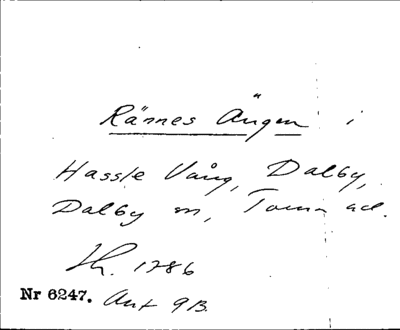 Rännes Ängen i
Hassle Vång, Dalby,
Dalby sn, Torna hd.
Lh. 1786
Nr 6247. Akt 9B.